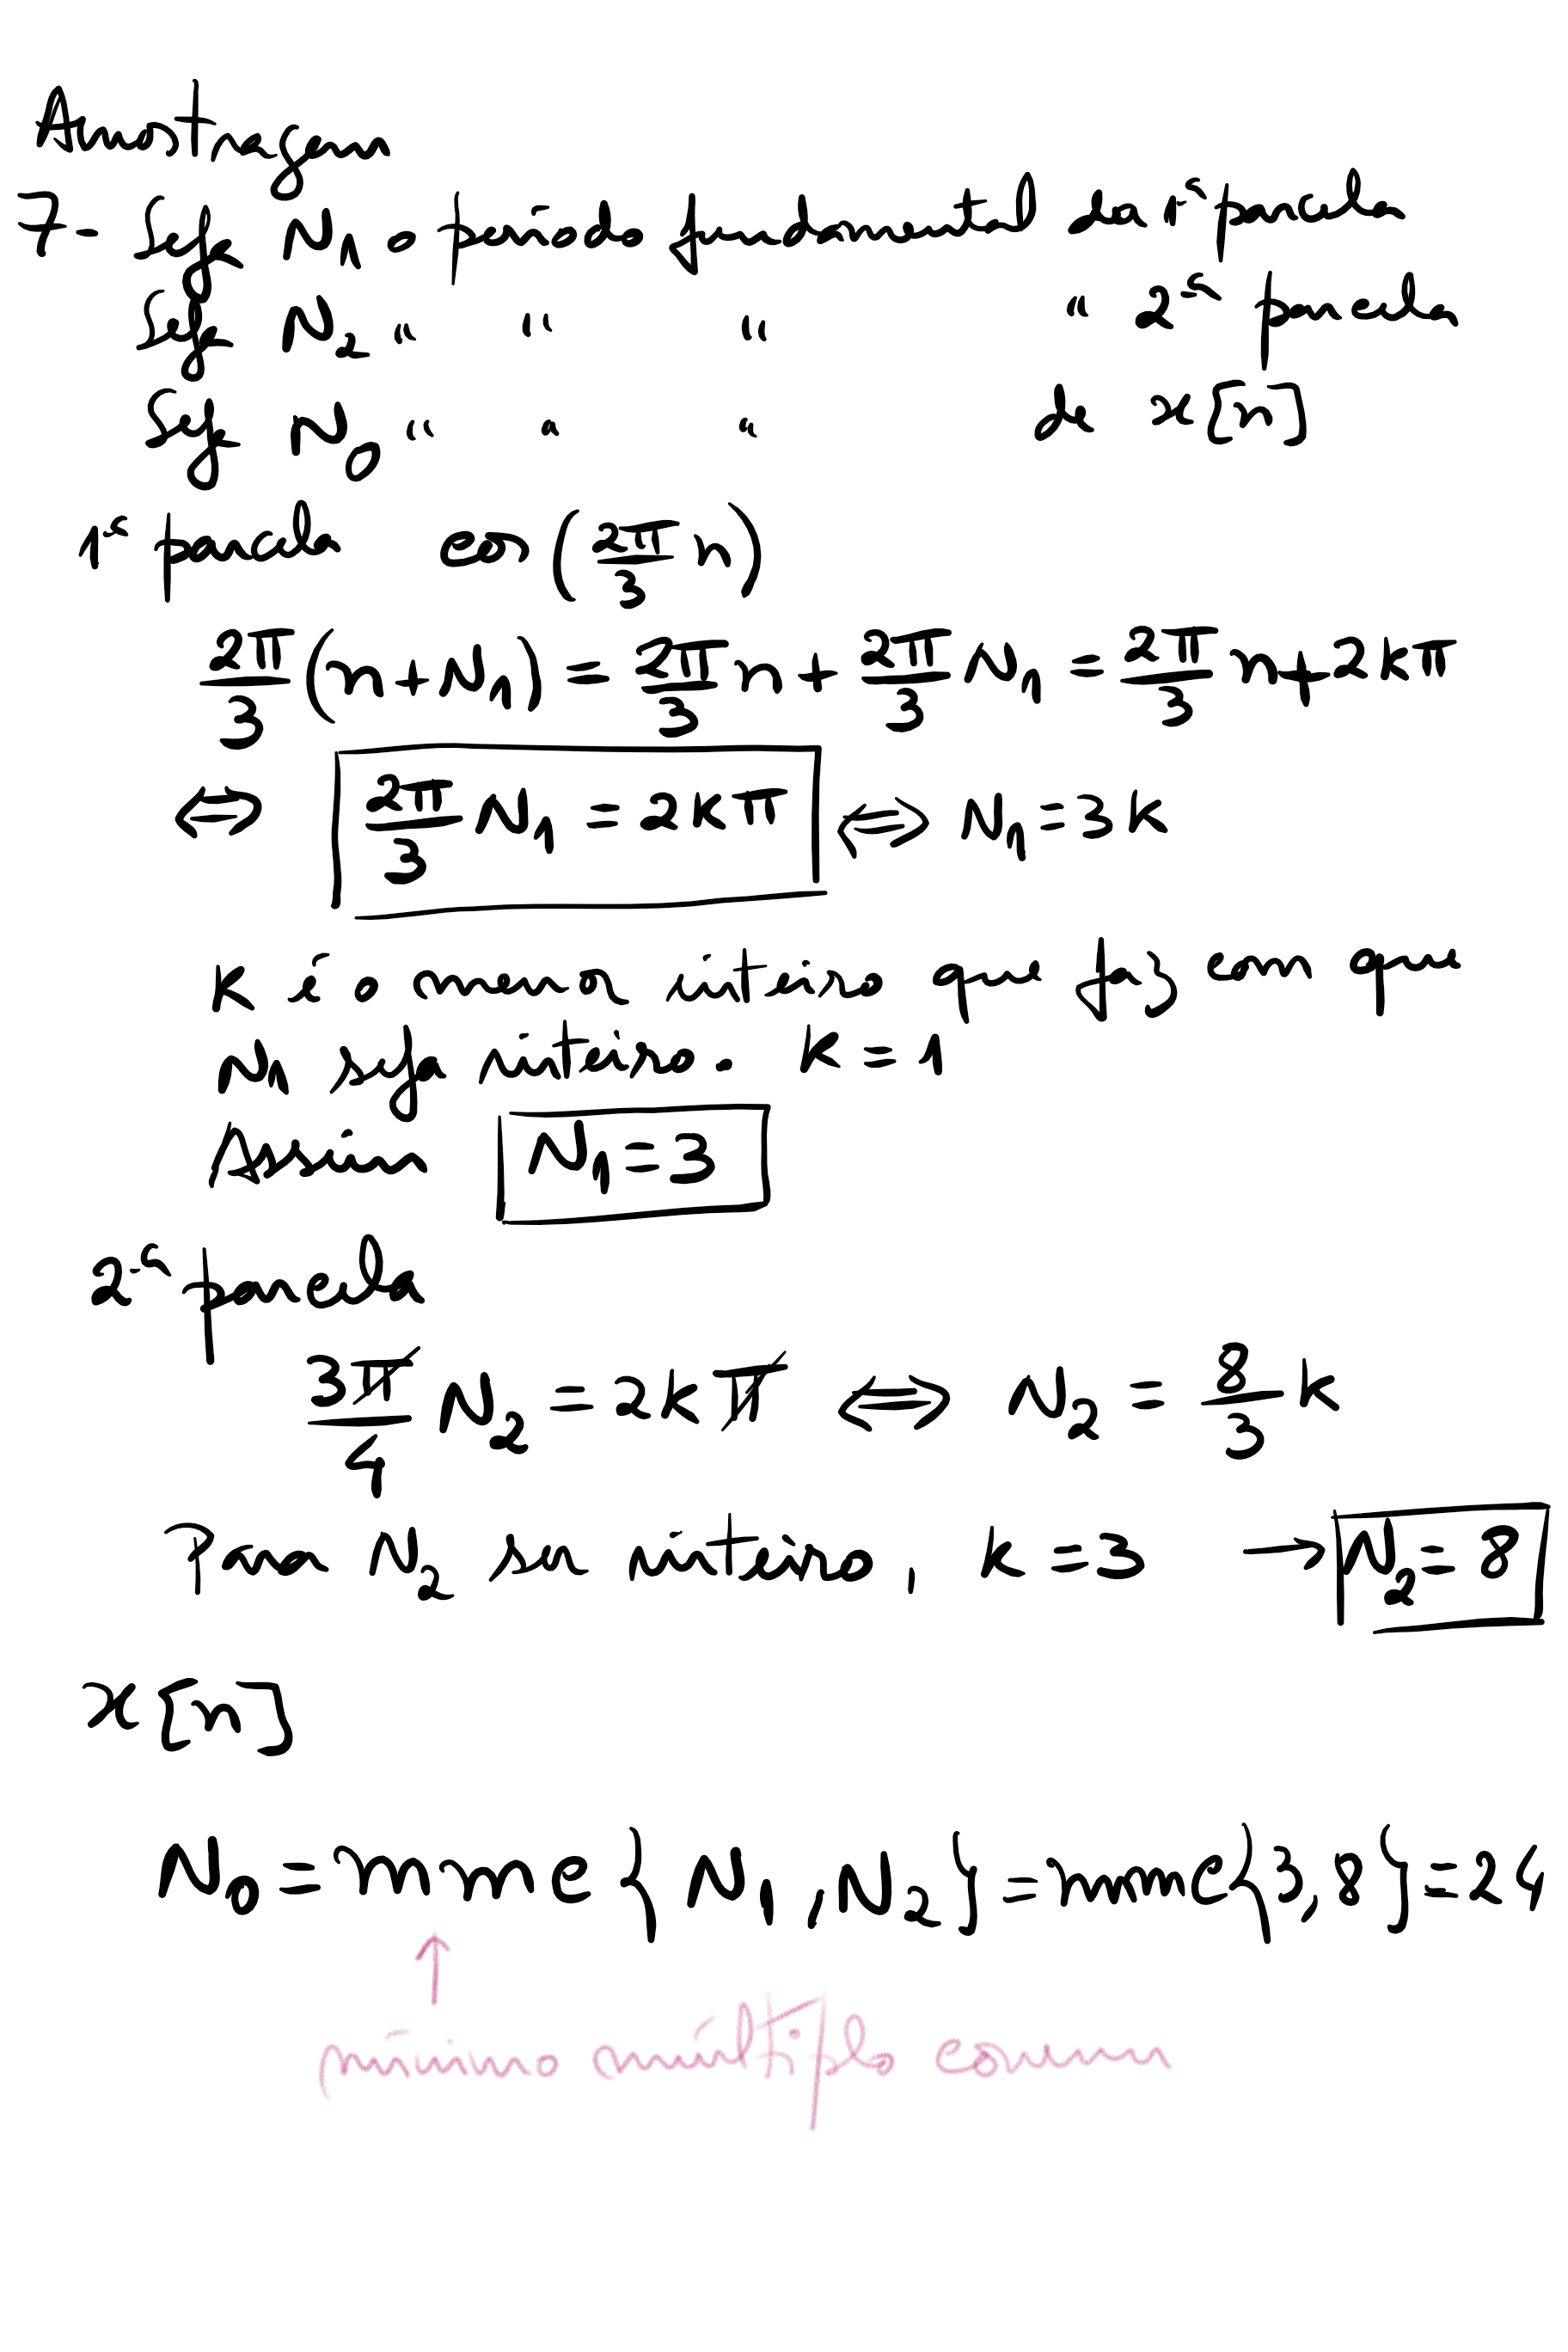 Amostragem
7- Seja N₁ o período fundamental da 1ª parcela
Seja N₂ " " " " 2ª parcela
Seja N₀ " " " de x[n]
1ª parcela cos(2π/3 n)
2π/3 (n + N₁) = 2π/3 n + 2π/3 N₁ = 2π/3 n + 2kπ
⇔ 2π/3 N₁ = 2kπ ⇔ N₁ = 3k
K é o menor inteiro que faz com que
N₁ seja inteiro. K = 1
Assim N₁ = 3
2ª parcela
3π/4 N₂ = 2kπ ⇔ N₂ = 8/3 k
Para N₂ ser inteiro, k = 3 → N₂ = 8
x[n]
N₀ = mmc{N₁, N₂} = mmc{3,8} = 24
↑
mínimo múltiplo comum